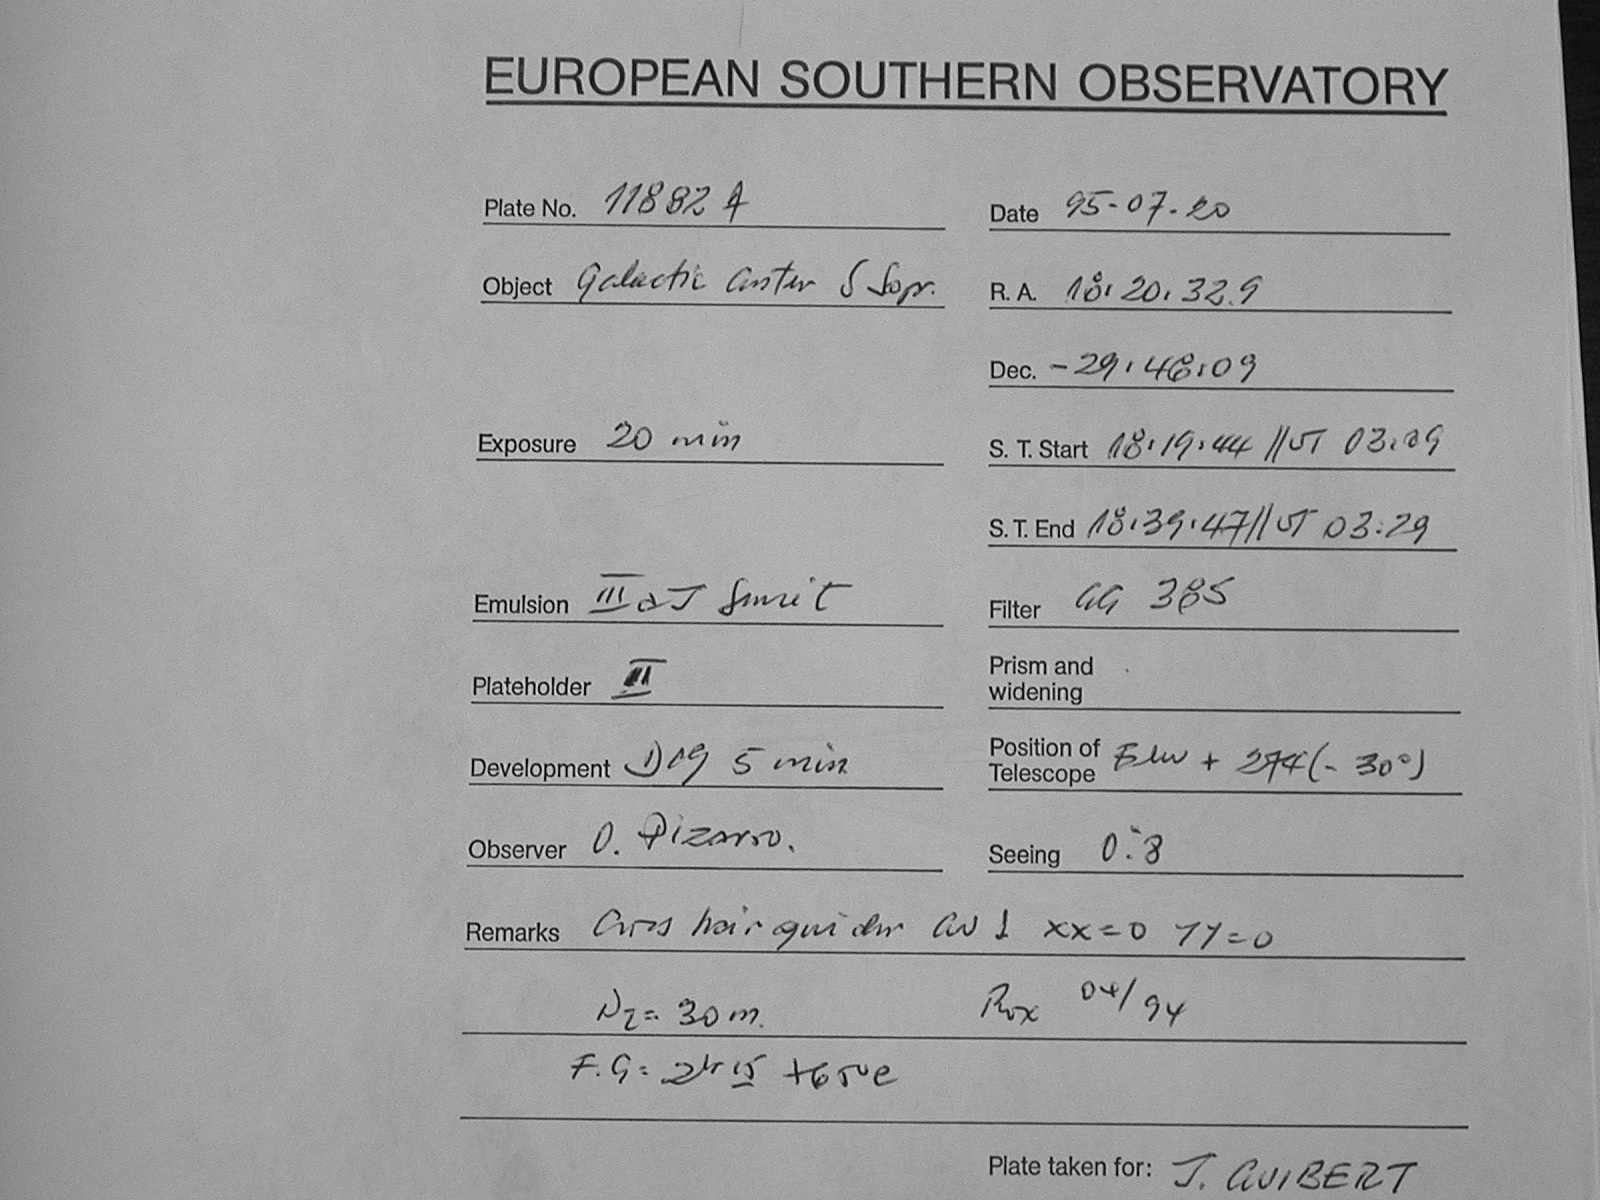 EUROPEAN SOUTHERN OBSERVATORY
Plate No. 11882 A
Date 95-07-20
Object Galactic Center S
R. A. 18:20:32.9
Dec. -29:48:09
Exposure 20 min
S. T. Start 18:19:44 // UT 03:09
S. T. End 18:39:47 // UT 03:29
Emulsion III aJ
Filter GG 385
Plateholder III
Prism and
widening
Development D19 5 min
Position of
Telescope + 274 (-30°)
Observer O. Pizarro.
Seeing 0.8
Remarks Cross hair guider xx=0 yy=0
N2= 30 m.
Box 04/94
F.G=
Plate taken for: J. GUIBERT